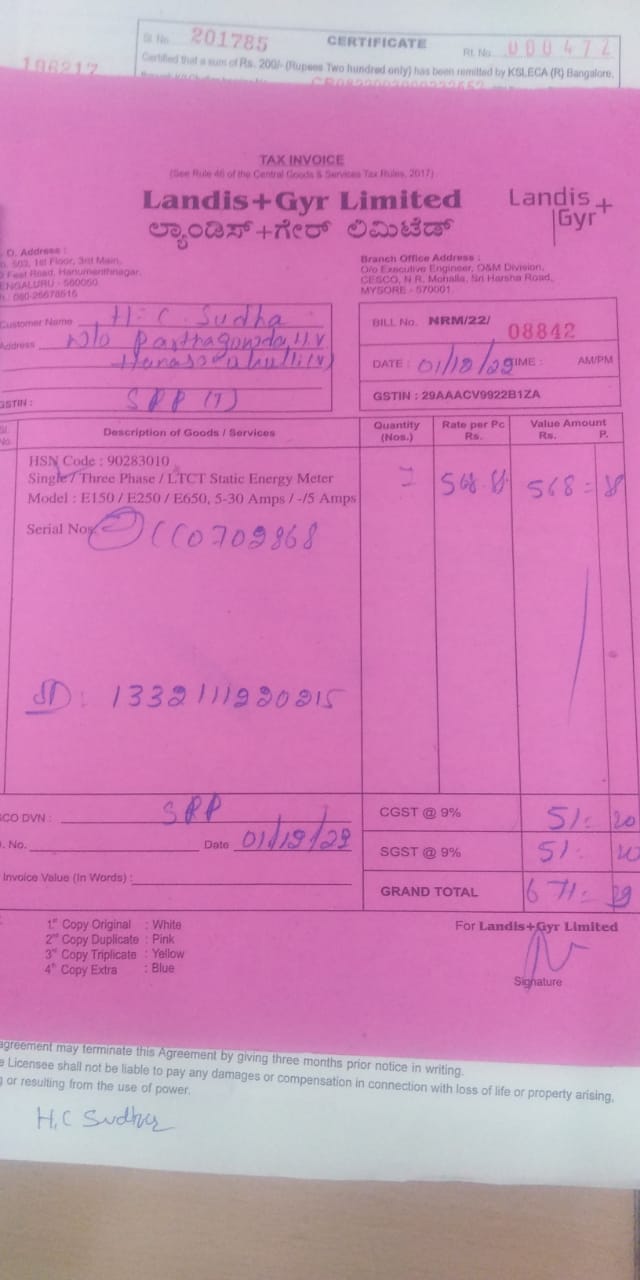 Sl. No. 201785 CERTIFICATE Rt. No. 000472
Certified that a sum of Rs. 200/- (Rupees Two hundred only) has been remitted by KSLECA (R) Bangalore.
196217
TAX INVOICE
(See Rule 46 of the Central Goods & Services Tax Rules, 2017)
Landis+Gyr Limited
Landis+
Gyr
ಲ್ಯಾಂಡಿಸ್+ಗೇರ್ ಲಿಮಿಟೆಡ್
O. Address :
503, 1st Floor, 3rd Main,
Feet Road, Hanumanthnagar,
ENGALURU - 560050
080-26678515
Branch Office Address :
O/o Executive Engineer, O&M Division,
CESCO, N.R. Mohalla, Sri Harsha Road,
MYSORE - 570001.
Customer Name H.C. Sudha
Address W/o
GSTIN : SPP (T)
BILL No. NRM/22/ 08842
DATE : TIME : AM/PM
GSTIN : 29AAACV9922B1ZA
Sl. No. Description of Goods / Services Quantity (Nos.) Rate per Pc Rs. Value Amount Rs. P.
HSN Code : 90283010
Single / Three Phase / LTCT Static Energy Meter
Model : E150 / E250 / E650, 5-30 Amps / -/5 Amps
568
Serial Nos. 0702868
1332111220215
CO DVN : SPP
No. Date
Invoice Value (In Words) :
CGST @ 9% 51 = 20
SGST @ 9% 51 = 20
GRAND TOTAL 671 =
1st Copy Original : White
2nd Copy Duplicate : Pink
3rd Copy Triplicate : Yellow
4th Copy Extra : Blue
For Landis+Gyr Limited
Signature
agreement may terminate this Agreement by giving three months prior notice in writing.
Licensee shall not be liable to pay any damages or compensation in connection with loss of life or property arising,
or resulting from the use of power.
H.C Sudha